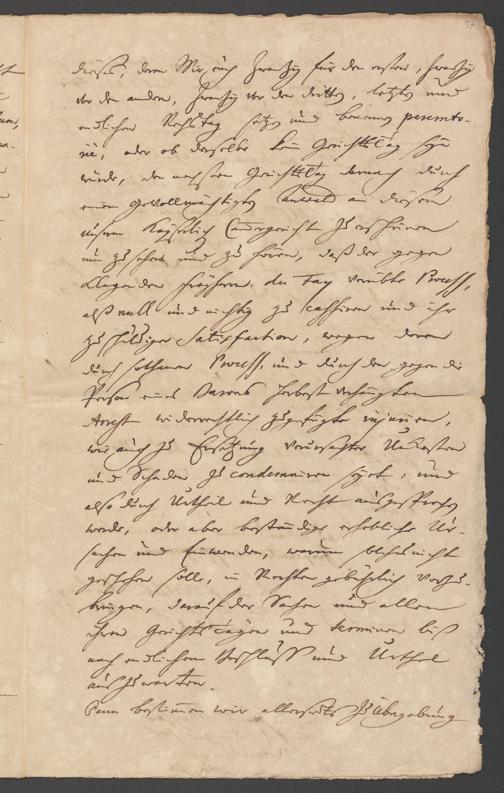 dieses, deren Wir, euch Zwantzig für den ersten, Zwantzig
vor den andern, Zwantzig vor den dritten, letzten und
endlichen Rechtstag setzen und benennen peremto-
rie, oder ob derselbe kein Gerichtstag seyn
würde, den nechsten Gerichtstag darnach durch
einen gevollmächtigten Anwald an diesem
unserm Kayserlich Cammergericht zu erscheinen
um zu sehen und zu hören, daß der gegen
Klagenden Freyherrn du Fay verübte Process,
als null und nichtig zu cassiren und ihr
zu schuldiger Satisfaction, wegen deren
durch solchanen Process, und durch den, gegen die
Person eines Barons verhängten
Arrest widerrechtlich zugefügte injurien,
wie auch zu Ersetzung verursachter Unkosten
und Schaden zu condemniren seyet, und
also durch Urtheil und Recht ausgesprochen
werde, oder aber beständige erhebliche Ur-
sachen und Einwenden, warum solches nicht
geschehen solle, in Rechten gebührlich vorzu-
bringen, darauf der Sachen und allen
ihren Gerichts Tägen und terminen biß
nach endlichem Beschluß und Urthel
auszuwarten.
Dann bestimen wir allerseits zu Abgebung